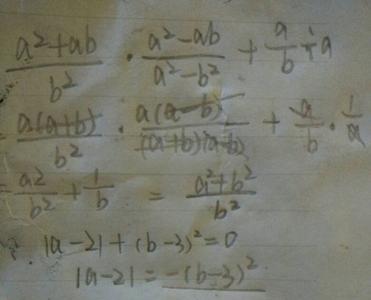 a²+ab/b² · a²-ab/a²-b² + a/b ÷ a
a(a+b)/b² · a(a-b)/(a+b)(a-b) + a/b · 1/a
= a²/b² + 1/b = a²+b²/b²
∵ |a-2| + (b-3)² = 0
|a-2| = -(b-3)²